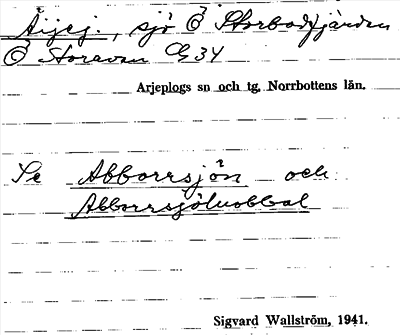 Äijej., sjö Ö Storbodfjärden
Ö Storavan G34
Arjeplogs sn och tg. Norrbottens län.
Se Abborrsjön och
Abborrsjöluobbal
Sigvard Wallström, 1941.